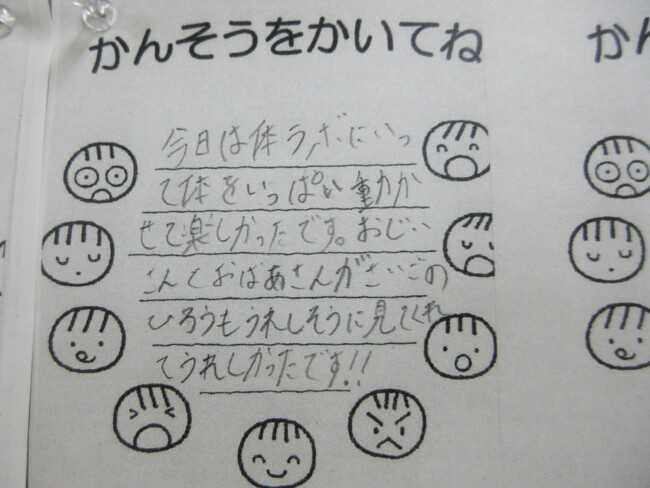 かんそうをかいてね
か
今日は体ラボにいっ
て体をいっぱい動か
せて楽しかったです。おじい
さんとおばあさんがさいごの
ひろうもうれしそうに見てくれ
てうれしかったです!!